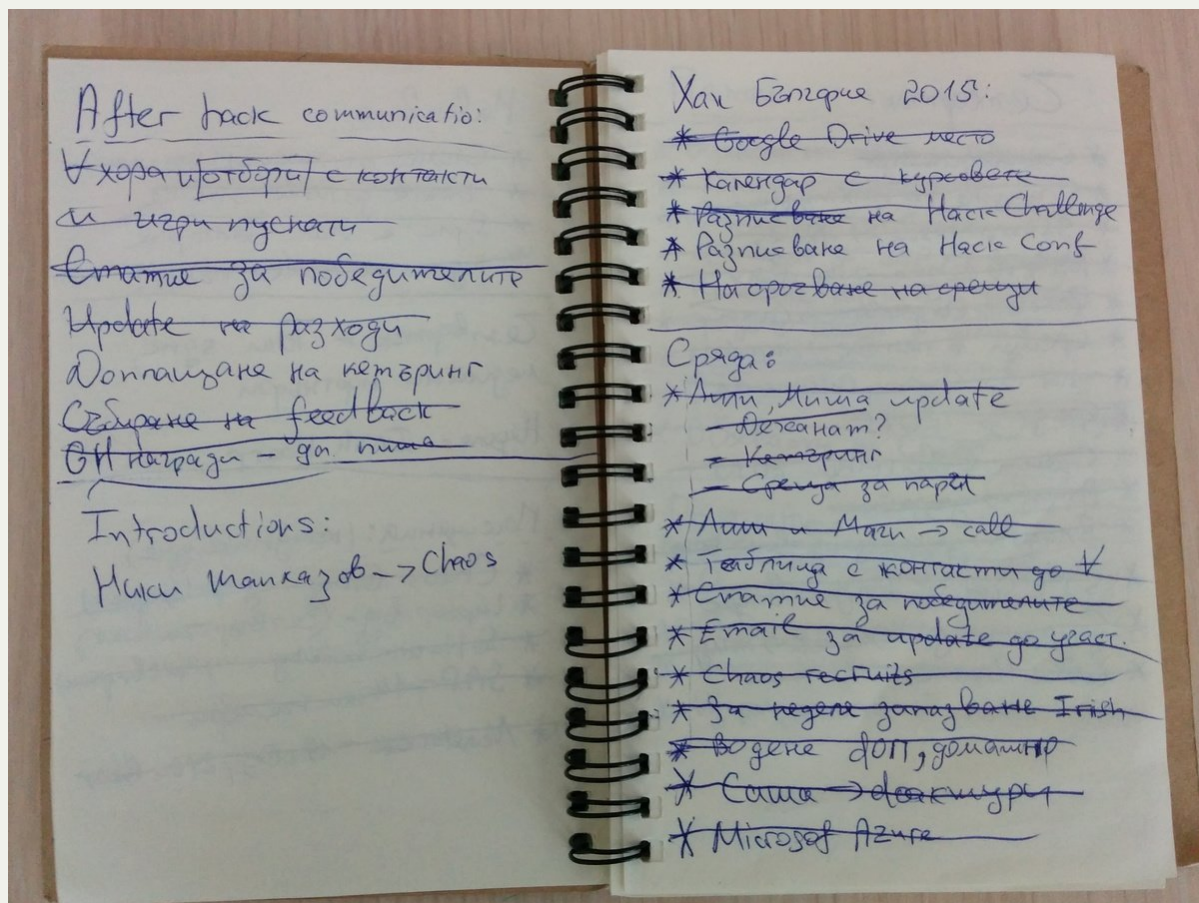 After hack communicatio:
∀ хора и отбори с контакти
и игри пускати
Статие за победителите
Update на разходи
Доплащане на кетъринг
Събиране на feedback
награди - да пиша
Introductions:
Ники → Chaos
Хак България 2015:
* Google Drive место
* Календар с курсовете
* Разписване на Hack Challenge
* Разписване на Hack Conf
* на срещи
Сряда:
* Лили, Миша update
- Деканат?
- Кетъринг
- Среща за парти
* Лили и Маги → call
* Таблица с контакти до ∀
* Статие за победителите
* Email за update до участ.
* Chaos recruits
* За неделе запазване Irish
* Водене ФОП, домашно
* Саша → фактури
* Microsof Azure